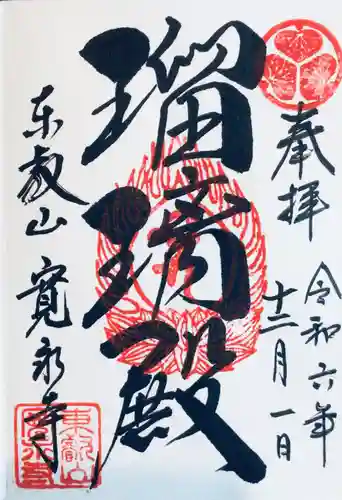 奉拝
令和六年
十二月一日
瑠璃殿
東叡山
寛永寺
東叡山
寛永寺